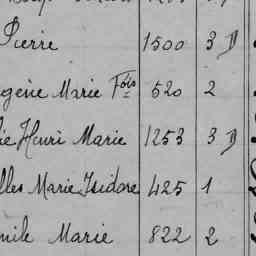 Pierre 1500 3 D
gène Marie Fois 520 2
ie Henri Marie 1253 3 D
lles Marie Isidore 425 1
mile Marie 822 2